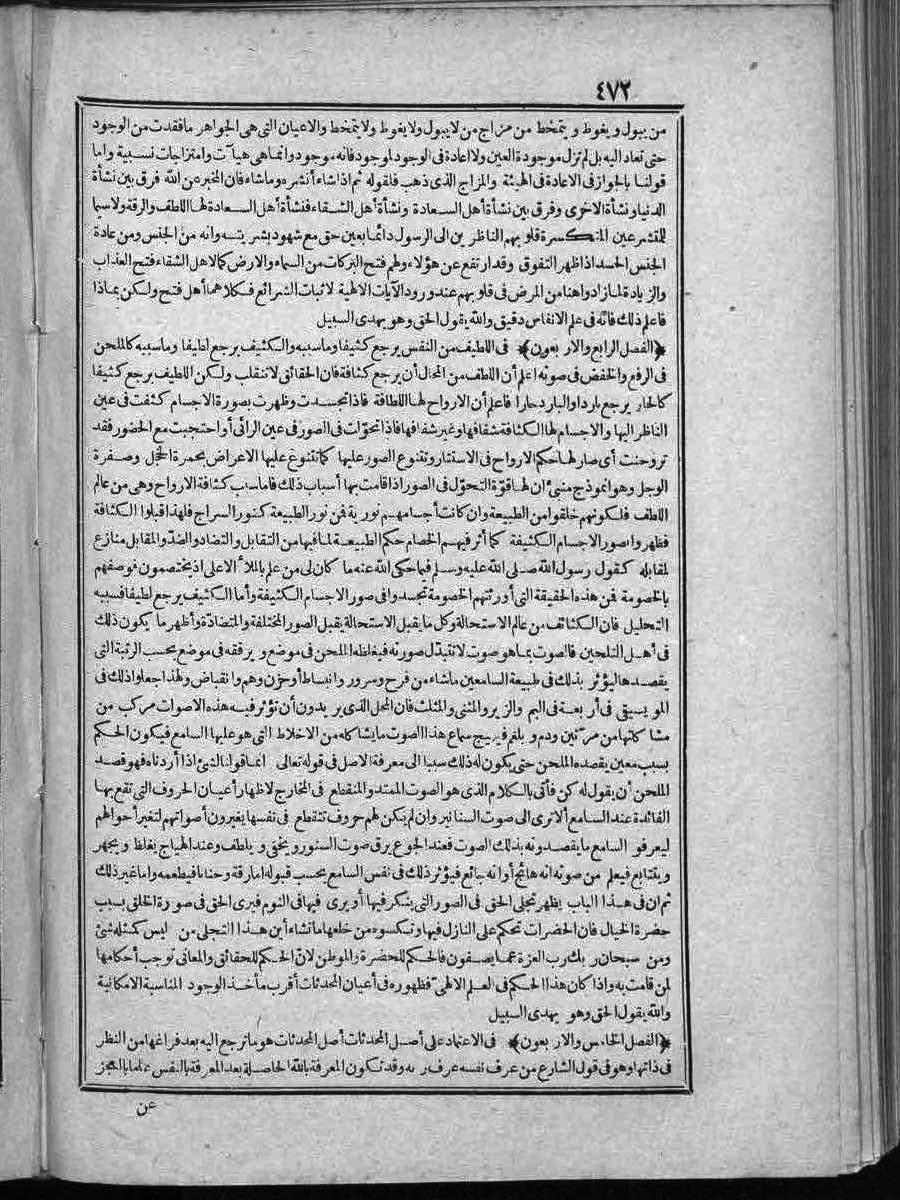 ٤٧٢
من يبول و يغوط و يتمخط من مزاج من لا يبول ولا يغوط ولا يتمخط والاعيان التى هى الجواهر ما فقدت من الوجود
حتى تعاد اليه بل لم تزل موجودة العين ولا اعادة فى الوجود لموجود فانه موجود وانما هى هيآت وامتزاجات نسبية واما
قولنا بالجواز فى الاعادة فى الهيئة والمزاج الذى ذهب فلقوله ثم اذا شاء أنشره وما شاء فان المخبر عن الله فرق بين نشأة
الدنيا ونشأة الاخرى وفرق بين نشأة أهل السعادة ونشأة أهل الشقاء فنشأة أهل السعادة لها اللطف والرقة ولا سيما
للمتشرعين المنكسرة قلوبهم الناظرين الى الرسول دائما بعين حق مع شهود بشريته وانه من الجنس ومن عادة
الجنس الحسد اذا ظهر التفوق وقد ارتفع عن هؤلاء ولهم فتح البركات من السماء والارض كما لاهل الشقاء فتح العذاب
والزيادة لما زادوا هنا من المرض فى قلوبهم عند ورود الآيات الالهية لاثبات الشرائع فكلاهما أهل فتح ولكن بماذا
فاعلم ذلك فانه فى علم الانفاس دقيق والله يقول الحق وهو يهدى السبيل
﴿الفصل الرابع والاربعون﴾ فى اللطيف من النفس يرجع كثيفا وما سببه والكثيف يرجع لطيفا وما سببه كالملحن
فى الرفع والخفض فى صوته اعلم أن اللطف من المحال أن يرجع كثافة فان الحقائق لا تنقلب ولكن اللطيف يرجع كثيفا
كالحار يرجع باردا والبارد حارا فاعلم أن الارواح لها اللطافة فاذا تجسدت وظهرت بصورة الاجسام كثفت فى عين
الناظر اليها والاجسام لها الكثافة شفافها وغير شفافها فاذا تحولت فى الصور فى عين الرائى أو احتجبت مع الحضور فقد
تروحنت أى صار لها حكم الارواح فى الاستتار وتنوع الصور عليها كما تتنوع عليها الاعراض بحمرة الخجل وصفرة
الوجل وهو انموذج منبئ ان لها قوة التحول فى الصور اذا قامت بها أسباب ذلك فاما سبب كثافة الارواح وهى من عالم
اللطف فلكونهم خلقوا من الطبيعة وان كانت أجسامهم نورية فمن نور الطبيعة كنور السراج فلهذا قبلوا الكثافة
فظهروا بصور الاجسام الكثيفة كما أثر فيهم الخصام حكم الطبيعة لما فيها من التقابل والتضاد والضد والمقابل منازع
لمقابله كقول رسول الله صلى الله عليه وسلم فيما حكى الله عنه ما كان لى من علم بالملأ الاعلى اذ يختصمون فوصفهم
بالخصومة فمن هذه الحقيقة التى أورثتهم الخصومة تجسدوا فى صور الاجسام الكثيفة وأما الكثيف يرجع لطيفا فسببه
التحليل فان الكثائف من عالم الاستحالة وكل ما يقبل الاستحالة يقبل الصور المختلفة والمتضادة وأظهر ما يكون ذلك
فى أهل التلحين فالصوت بما هو صوت لا تتبدل صورته فيغلظه الملحن فى موضع ويرققه فى موضع بحسب الرتبة التى
يقصدها ليؤثر بذلك فى طبيعة السامعين ما شاء من فرح وسرور وانبساط أو حزن وهم وانقباض ولهذا جعلوا ذلك فى
المويسيقى فى أربعة فى البم والزير والمثنى والمثلث فان المحل الذى يريدون أن تؤثر فيه هذه الاصوات مركب من
مشاكلتها من مرتين ودم وبلغم فيهيج سماع هذا الصوت ما يشاكله من الاخلاط التى هو عليها السامع فيكون الحكم
بسبب معين يقصده الملحن حتى يكون له ذلك سببا الى معرفة الاصل فى قوله تعالى انما قولنا لشئ اذا أردناه فهو قصد
الملحن أن يقول له كن فأتى بالكلام الذى هو الصوت الممتد والمنقطع فى المخارج لاظهار أعيان الحروف التى تقع بها
الفائدة عند السامع ألا ترى الى صوت السنانير وان لم يكن لهم حروف تتقطع فى نفسها يغيرون أصواتهم لتغير احوالهم
ليعرفو السامع ما يقصدونه بذلك الصوت فعند الجوع يرق صوت السنور ويخفى ويلطف وعند الهياج يغلظ ويجهر
ويتتابع فيعلم من صوته انه هائج أو انه جائع فيؤثر ذلك فى نفس السامع بحسب قبوله اما رقة وحنانا فيطعمه واما غير ذلك
ثم ان فى هذا الباب يظهر تجلى الحق فى الصور التى ينكر فيها أو يرى فيها فى النوم فيرى الحق فى صورة الخلق بسبب
حضرة الخيال فان الحضرات تحكم على النازل فيها وتكسوه من خلعها ما تشاء أين هذا التجلى من ليس كمثله شئ
ومن سبحان ربك رب العزة عما يصفون فالحكم للحضرة والموطن لان الحكم للحقائق والمعانى توجب أحكامها
لمن قامت به واذا كان هذا الحكم فى العلم الالهى فظهوره فى أعيان المحدثات أقرب مأخذ الوجود المناسبة الامكانية
والله يقول الحق وهو يهدى السبيل
﴿الفصل الخامس والاربعون﴾ فى الاعتماد على أصل المحدثات أصل المحدثات هو ما ترجع اليه بعد فراغها من النظر
فى ذاتها وهو فى قول الشارع من عرف نفسه عرف ربه وقد تكون المعرفة بالله الحاصلة بعد المعرفة بالنفس علما بالعجز
عن